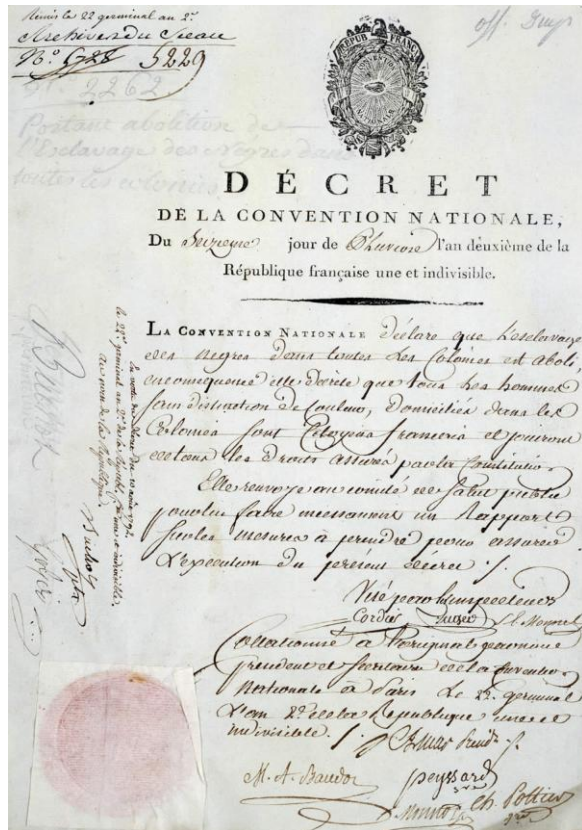 Remis le 22 germinal an 2.e
Archives du Sceau
N.o 5728 5229
N.o 2262.
Portant abolition de
l'Esclavage des Nègres dans
toutes les colonies
off.
REPUB FRANC
DÉCRET
DE LA CONVENTION NATIONALE,
Du Seizieme jour de Pluviose l'an deuxième de la
République française une et indivisible.
LA CONVENTION NATIONALE déclare que l'esclavage
des negres dans toutes les Colonies est aboli,
en consequence elle décrete que tous les hommes
sans distinction de couleur, domiciliés dans les
Colonies sont Citoyens francais et jouiront
de tous les droits assurés par la Constitution.
Elle renvoye au comité de salut public
pour lui faire incessament un Rapport
sur les mesures à prendre pour assurer
L'execution du present decret ./.
Visé par les inspecteurs
Cordier
Collationné à l'original par nous
president et secretaires de la Convention
Nationale à Paris Le 22. germinal
L'an 2.e de la Republique une et
indivisible. ./.
M. A. Baudot Peyssard
Ch. Pottier
au nom de la République